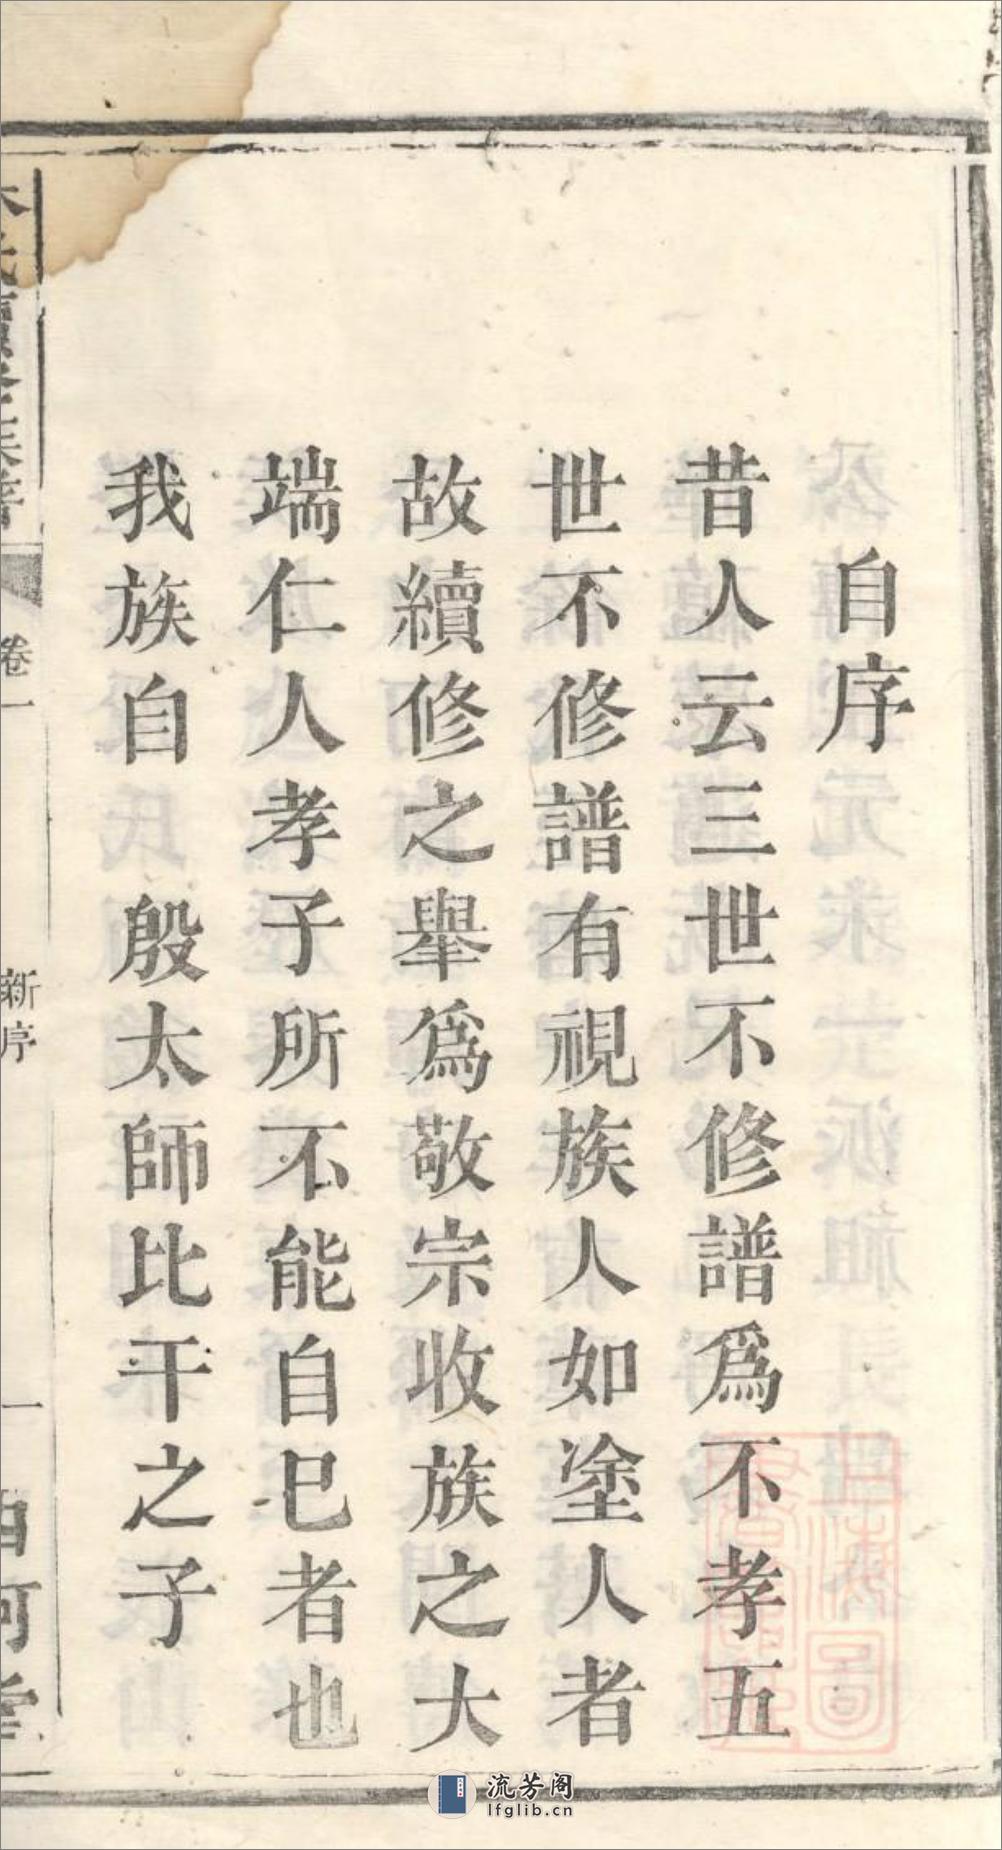 自序
昔人云三世不修譜爲不孝五
世不修譜有視族人如塗人者
故續修之舉爲敬宗收族之大
端仁人孝子所不能自巳者也
我族自　殷太師比干之子
卷一
新序
一
流芳阁
lfglib.cn